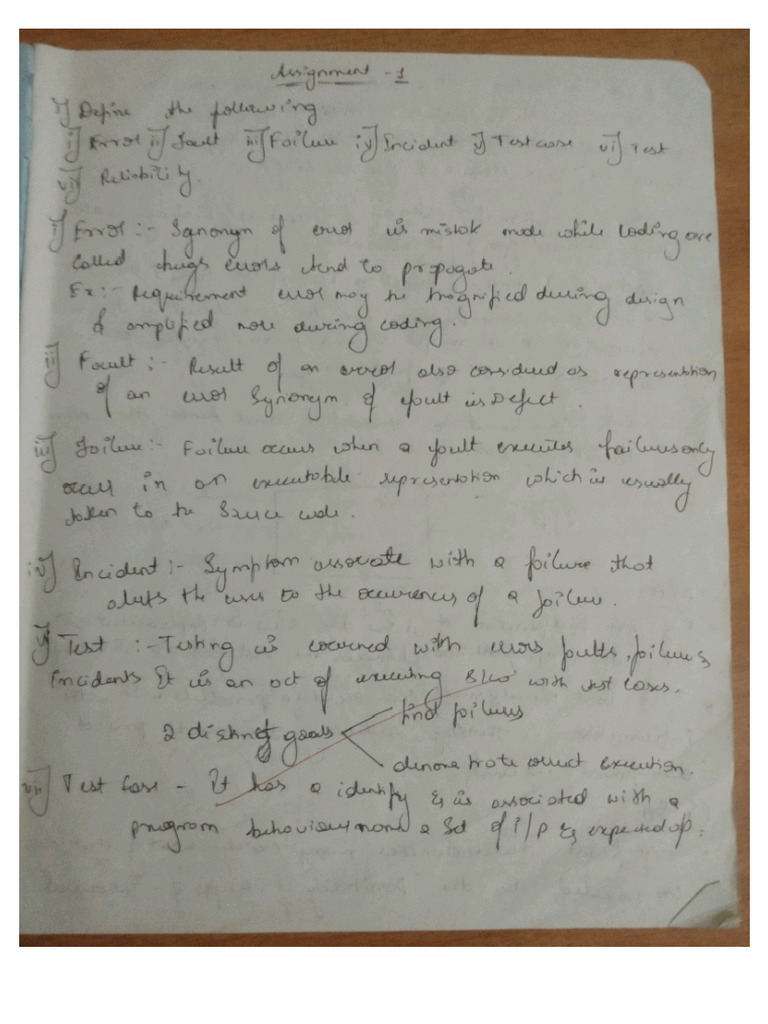 Assignment - 1
1) Define the following
i) Error ii) Fault iii) Failure iv) Incident v) Test case vi) Test
vii) Reliability.
i) Error :- Synonym of error is mistak made while coding are
called bugs errors tend to propogate.
Ex:- Requirement error may be magnified during design
& amplified more during coding.
ii) Fault :- Result of an error also considered as representation
of an error Synonym of fault is Defect.
iii) Failure :- Failure occurs when a fault executes failures only
occur in an executable representation which is usually
taken to be Source code.
iv) Incident :- Symptom associate with a failure that
alerts the user to the occurences of a failure.
v) Test :- Testing is concerned with errors faults, failures
incidents It is an act of executing s/w with test cases.
2 distinct goals find failures
demonstrate correct execution.
vi) Test Case - It has a identify & is associated with a
program behaviour a Set of i/p & expected o/p.